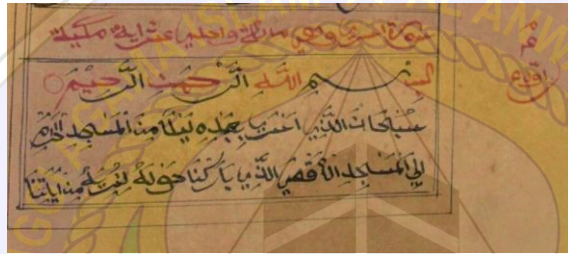 سورة اسرى وهي مائة واحدى عشر اية مكية
بسم الله الرحمن الرحيم
سبحان الذي اسرى بعبده ليلا من المسجد الحرام
الى المسجد الاقصى الذي باركنا حوله لنريه من ايتنا